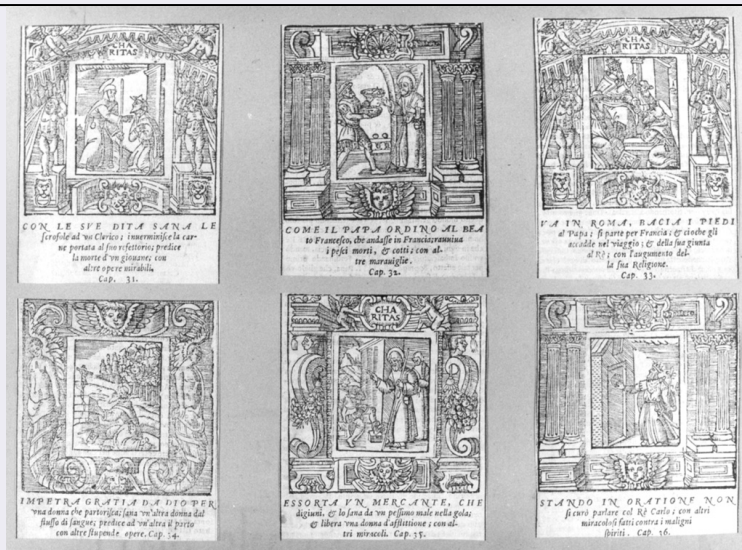 CHA
RITAS
CON LE SVE DITA SANA LE
scrofole ad vn Clerico; inuerminisce la car-
ne portata al suo refettorio; predice
la morte d'vn giouane; con
altre opere mirabili.
Cap. 31.
COME IL PAPA ORDINO AL BEA
to Francesco, che andasse in Francia: rauuiua
i pesci morti, & cotti; con al-
tre marauiglie.
Cap. 32.
CHA
RITAS
VA IN ROMA, BACIA I PIEDI
al Papa; si parte per Francia; & cioche gli
accadde nel viaggio; & della sua giunta
al Rè; con l'augumento del-
la sua Religione.
Cap. 33.
IMPETRA GRATIA DA DIO PER
vna donna che partorisca; sana vn'altra donna dal
flusso di sangue; predice ad vn'altra il parto
con altre stupende opere. Cap. 34.
CHA
RITAS
ESSORTA VN MERCANTE, CHE
digiuni, & lo sana da vn pessimo male nella gola;
& libera vna donna d'afflittione; con al-
tri miracoli. Cap. 35.
STANDO IN ORATIONE NON
si curò parlare col Rè Carlo; con altri
miracolosi fatti contra i maligni
spiriti. Cap. 36.